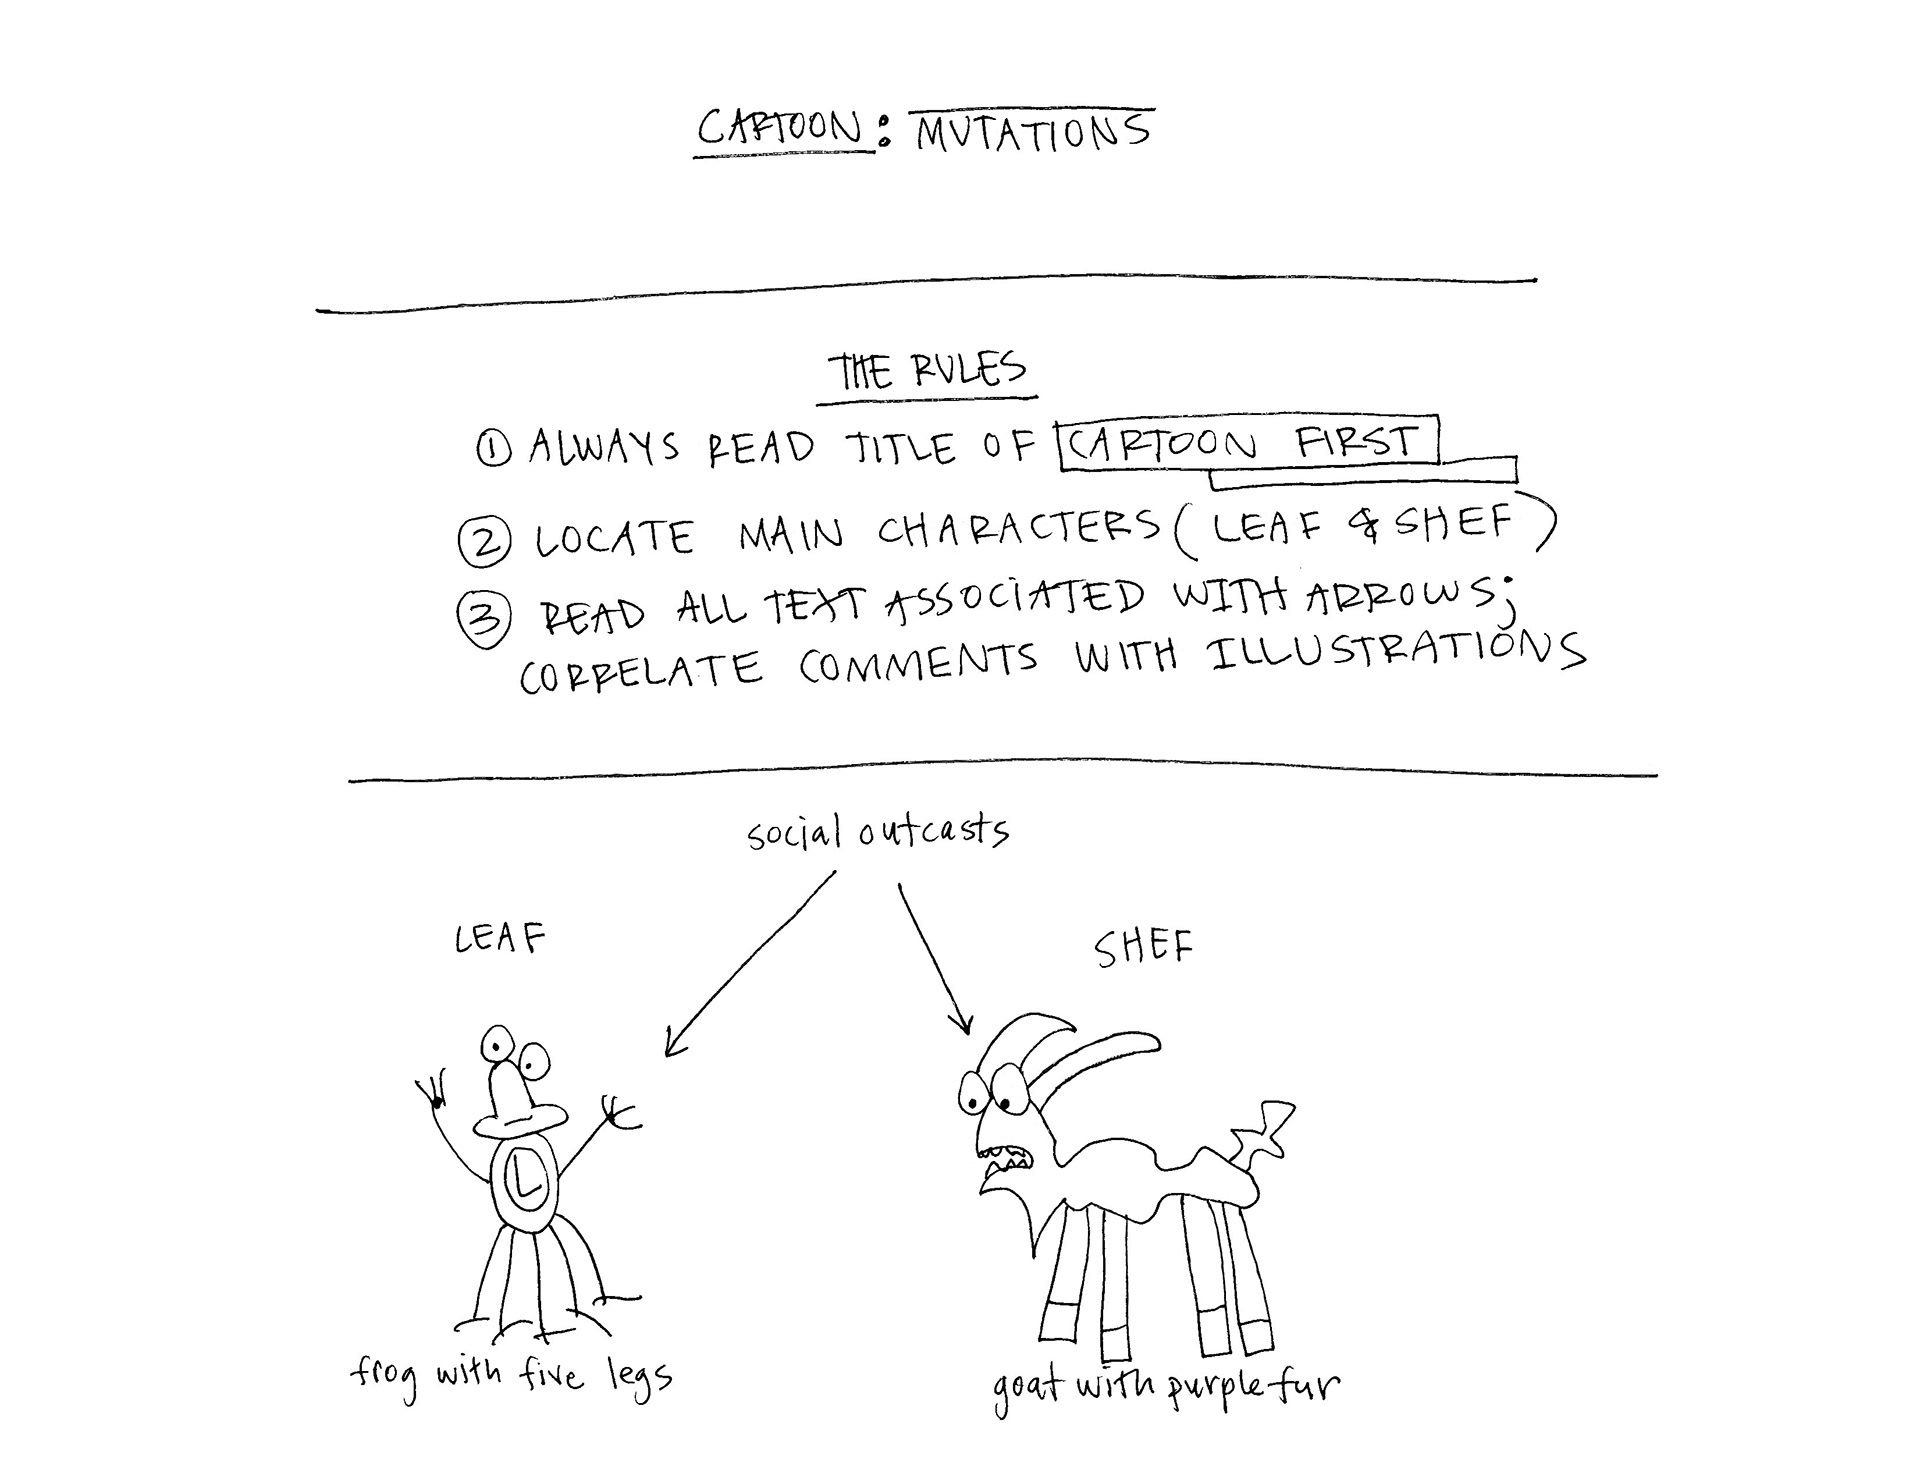 CARTOON: MUTATIONS
THE RULES
① ALWAYS READ TITLE OF CARTOON FIRST
② LOCATE MAIN CHARACTERS (LEAF & SHEF)
③ READ ALL TEXT ASSOCIATED WITH ARROWS;
CORRELATE COMMENTS WITH ILLUSTRATIONS
social outcasts
LEAF
SHEF
L
frog with five legs
goat with purple fur